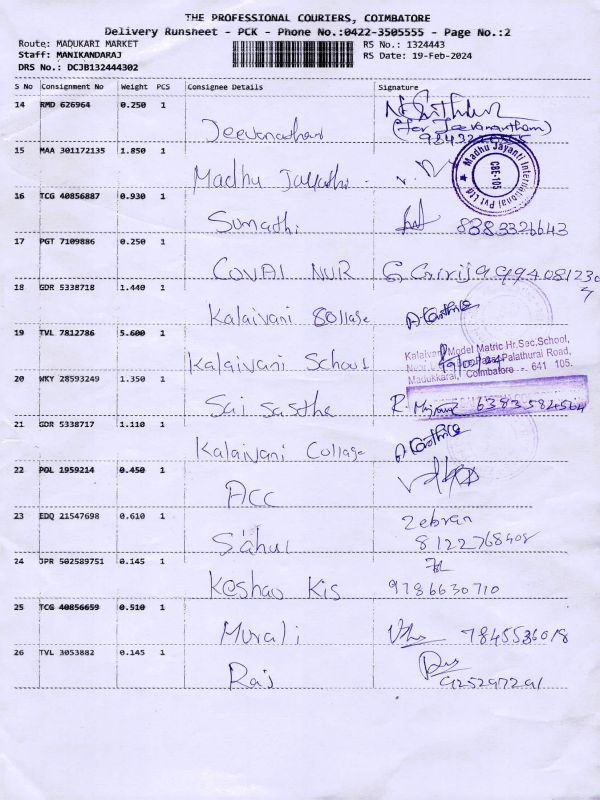 THE PROFESSIONAL COURIERS, COIMBATORE
Delivery Runsheet - PCK - Phone No.:0422-3505555 - Page No.:2
Route: MADUKARI MARKET
RS No.: 1324443
Staff: MANIKANDARAJ
RS Date: 19-Feb-2024
DRS No.: DCJB132444302
S No Consignment No Weight PCS Consignee Details Signature
14 RMD 626964 0.250 1
Jeevanathan
(for Jeevanantham)
15 MAA 301172135 1.850 1
Madhu Jayathi
Madhu Jayanti International Pvt Ltd
CBE-105
16 TCG 40856887 0.930 1
Sumathi 8383326643
17 PGT 7109886 0.250 1
COVAI NUR
18 GDR 5338718 1.440 1
Kalaivani Collage
19 TVL 7812786 5.600 1
Kalaivani School
Kalaivani Model Matric Hr.Sec.School,
Palathurai Road,
Madukkarai, Coimbatore - 641 105.
19/02/24
20 WKY 28593249 1.350 1
Sai Sastha 6383582564
21 GDR 5338717 1.110 1
Kalaivani Collage
22 POL 1959214 0.450 1
ACC
23 EDQ 21547698 0.610 1
Sahul
Zebran
8122768408
24 JPR 502589751 0.145 1
Keshav Kis 9786630710
25 TCG 40856659 0.510 1
Murali 7845536018
26 TVL 3053882 0.145 1
Raj 9252972291